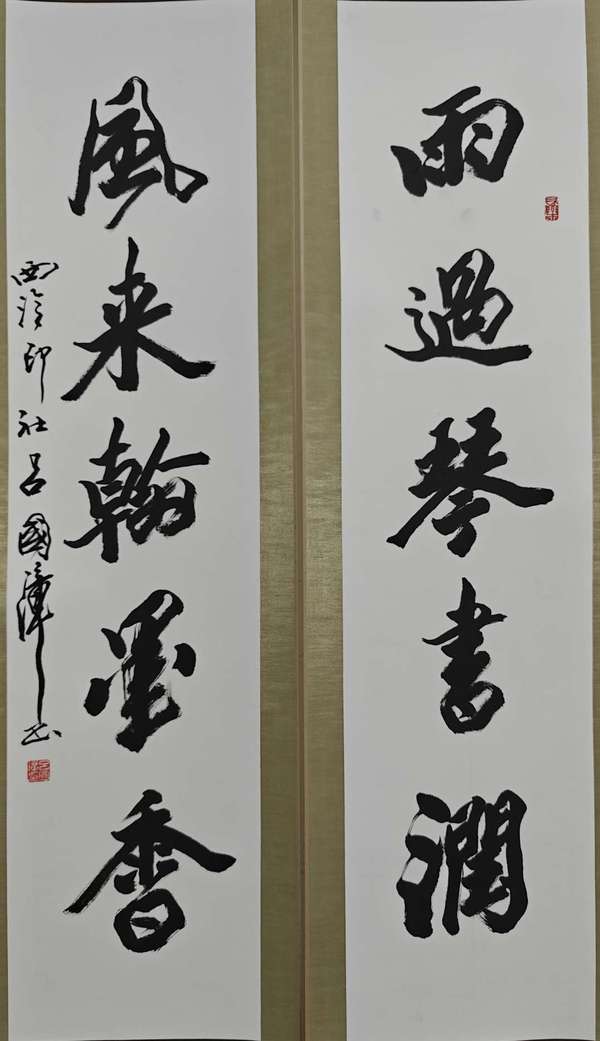 雨過琴書潤
風来翰墨香
西泠印社呂國璋书